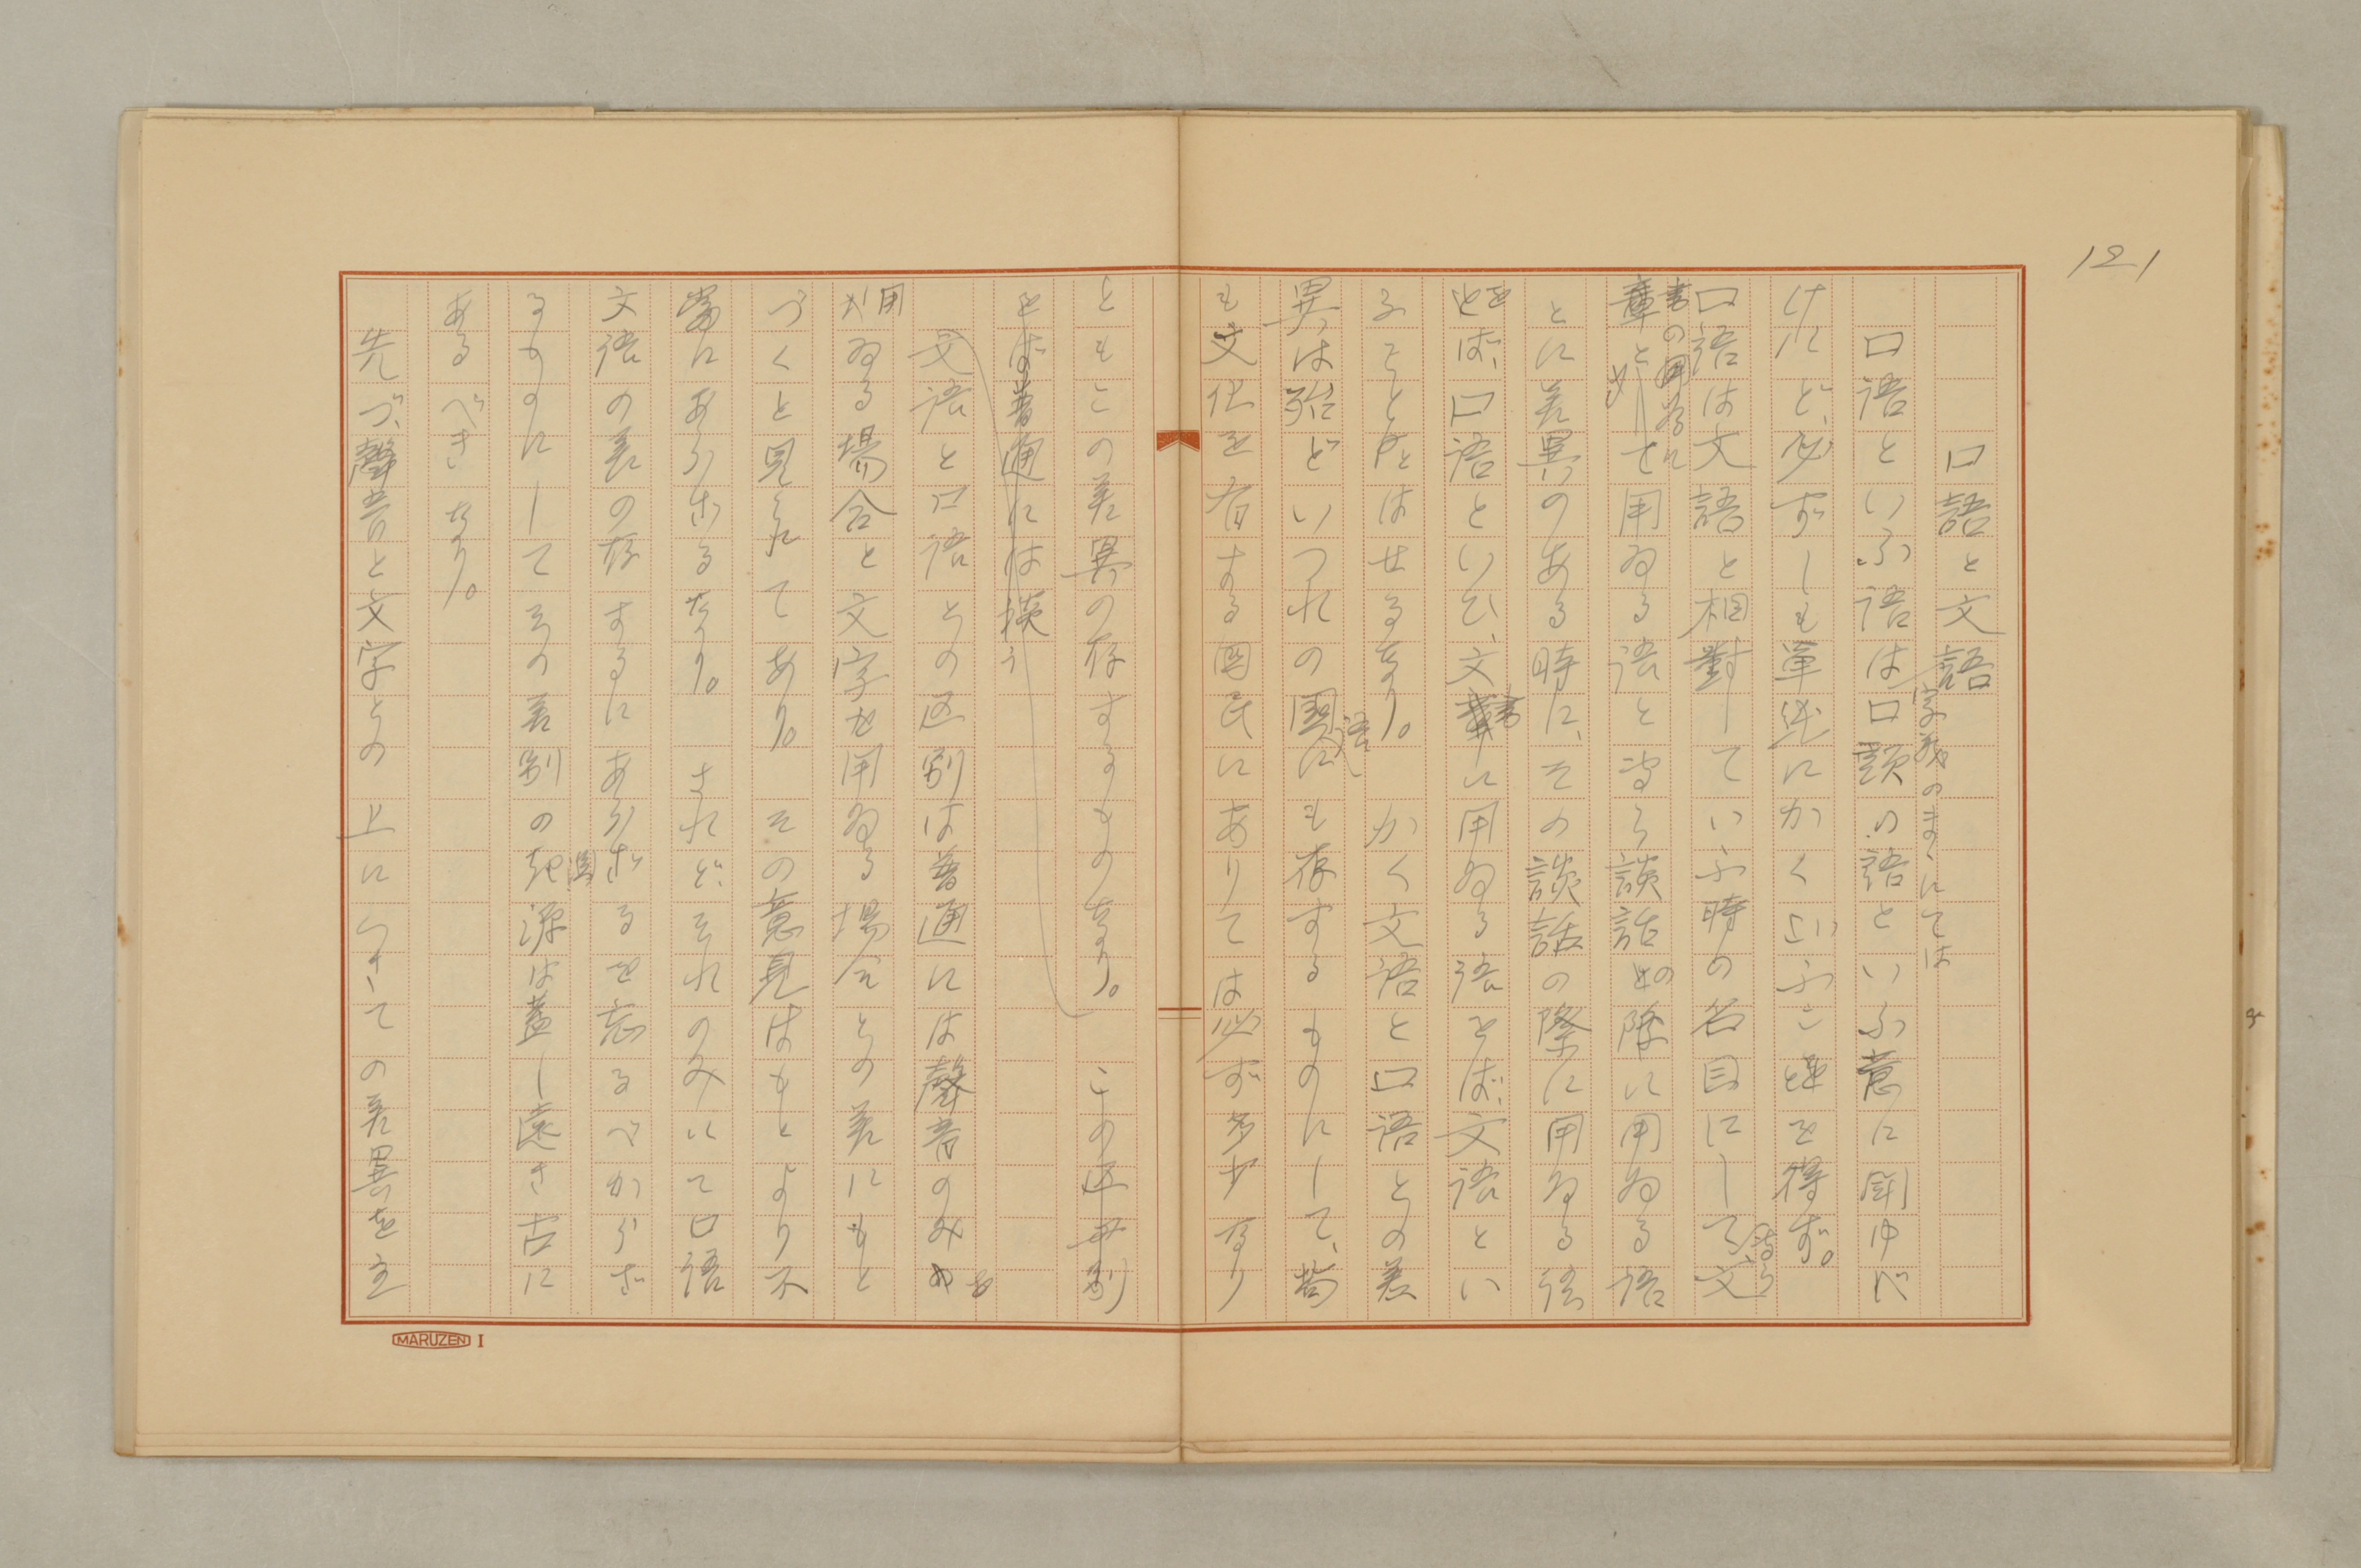 121
口語と文語
字義のまゝにては
口語といふ語は口頭の語といふ意に聞ゆべ
けれど、必ずしも單純にかくいふことを得ず。
口語は文語と相對していふ時の名目にして、文
章と用ゐる語と專ら談話の際に用ゐる語
とに差異のある時に、その談話の際に用ゐる語
をば、口語といひ、文書に用ゐる語をば、文語とい
ふことゝはせるなり。かく文語と口語との差
異は殆どいづれの國語にも存するものにして、苟
も文化を有する國民にありては必ず多少なり
ともこの差異の存するものなり。この区別
をば普通には談う
文語と口語との区別は普通には聲音のみを
用ゐる場合と文字を用ゐる場合との差にもと
づくと見られてあり。その意見はもとより不
當にあらざるなり。されど、それのみにて口語
文語の差の存するにあらざるを忘るべからざ
るものにしてその差別の起源は蓋し遠き古に
あるべきなり。
先づ、聲音と文字との上につきての差異を主
MARUZEN I